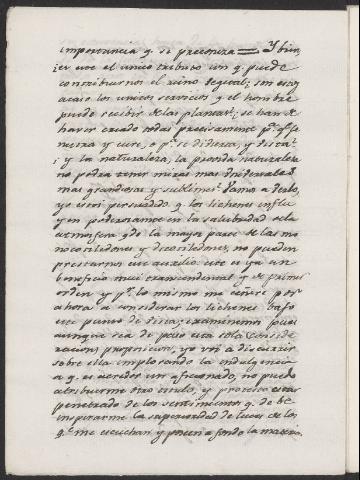 importancia q. se preconiza = Y bien,
¿es ese el unico tributo con q. puede
contribuirnos el reino vegetal; son estos
acaso los unicos servicios q. el hombre
puede recibir de las plantas?, se han de
haver creado todas precisamente pª. qe.
y cure, o pª. se divierta, y vista?
¿y la naturaleza, la provida naturaleza
no podra tener miras mas
mas grandiosas y sublimes? Vamos a verlo,
yo estoi persuadido q. los lichenes influ
yen poderosamente en la salubridad de la
atmosfera qe. de la mayor parte de las mo
nocotiledones y dicotiledones, no pueden
prestarnos su auxilio: este es ya un
beneficio mui transcendental y de primer
orden y pr. lo mismo me ceñire por
ahora a considerar los lichenes bajo
este punto de vista; examinemos pues
aunque sea de paso esta sola conside
racion; proposicion; yo voi a discurrir
sobre ella implorando la indulgencia
a q. es acreedor un aficionado, no puedo
atribuirme otro titulo, y protesto estar
penetrado de los sentimientos q. debe
inspirarme la superioridad de luces de los
qe. me escuchan y poseen a fondo la materia.